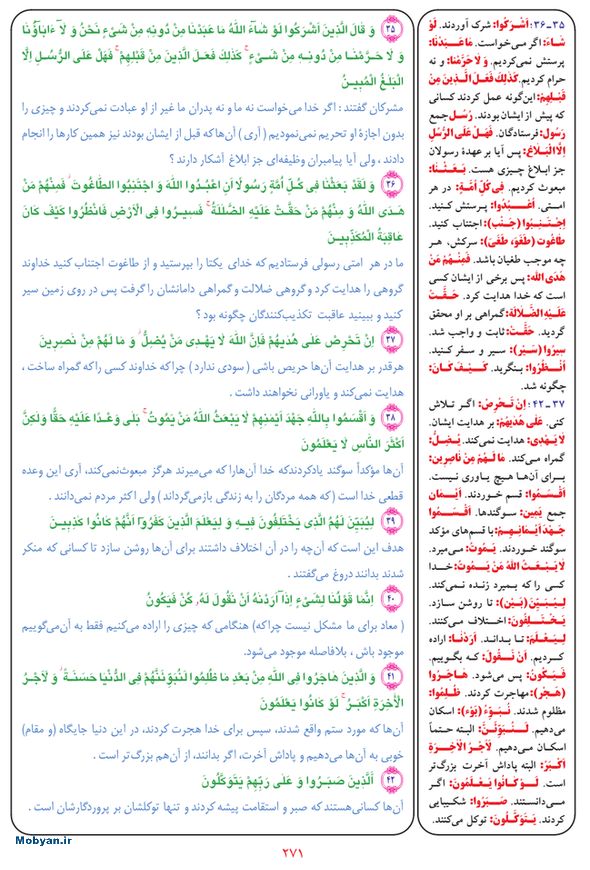 ۳۵ وَ قَالَ الَّذِينَ اَشْرَكُوا لَوْ شَآءَ اللّٰهُ ما عَبَدْنَا مِنْ دُونِهِ مِنْ شَىْءٍ نَحْنُ وَ لَآ ءَابَآؤُنَا
وَ لَا حَرَّمْنَا مِنْ دُونِهِ مِنْ شَىْءٍ ۚ كَذٰلِكَ فَعَلَ الَّذِينَ مِنْ قَبْلِهِمْ ۚ فَهَلْ عَلَى الرُّسُلِ اِلَّا
الْبَلٰغُ الْمُبِينُ
مشرکان گفتند : اگر خدا می‌خواست نه ما و نه پدران ما غیر از او عبادت نمی‌کردند و چیزی را
بدون اجازهٔ او تحریم نمی‌نمودیم ( آری ) آن‌ها که قبل از ایشان بودند نیز همین کارها را انجام
دادند ، ولی آیا پیامبران وظیفه‌ای جز ابلاغ آشکار دارند ؟
۳۶ وَ لَقَدْ بَعَثْنَا فِى كُلِّ اُمَّةٍ رَسُولًا اَنِ اعْبُدُوا اللّٰهَ وَ اجْتَنِبُوا الطَّاغُوتَ ۖ فَمِنْهُمْ مَنْ
هَدَى اللّٰهُ وَ مِنْهُمْ مَنْ حَقَّتْ عَلَيْهِ الضَّلٰلَةُ ۚ فَسِيرُوا فِى الْاَرْضِ فَانْظُرُوا كَيْفَ كَانَ
عَاقِبَةُ الْمُكَذِّبِينَ
ما در هر امتی رسولی فرستادیم که خدای یکتا را بپرستید و از طاغوت اجتناب کنید خداوند
گروهی را هدایت کرد و گروهی ضلالت و گمراهی دامانشان را گرفت پس در روی زمین سیر
کنید و ببینید عاقبت تکذیب‌کنندگان چگونه بود ؟
۳۷ اِنْ تَحْرِصْ عَلٰى هُدٰيهُمْ فَاِنَّ اللّٰهَ لَا يَهْدِى مَنْ يُضِلُّ ۖ وَ مَا لَهُمْ مِنْ نٰصِرِينَ
هرقدر بر هدایت آن‌ها حریص باشی ( سودی ندارد ) چراکه خداوند کسی را که گمراه ساخت ،
هدایت نمی‌کند و یاورانی نخواهند داشت .
۳۸ وَ اَقْسَمُوا بِاللّٰهِ جَهْدَ اَيْمٰنِهِمْ ۙ لَا يَبْعَثُ اللّٰهُ مَنْ يَمُوتُ ۚ بَلٰى وَعْدًا عَلَيْهِ حَقًّا وَلٰكِنَّ
اَكْثَرَ النَّاسِ لَا يَعْلَمُونَ
آن‌ها مؤکداً سوگند یادکردندکه خدا آن‌هارا که می‌میرند هرگز مبعوث‌نمی‌کند، آری این وعده
قطعی خدا است ( که همه مردگان را به زندگی بازمی‌گرداند ) ولی اکثر مردم نمی‌دانند .
۳۹ لِيُبَيِّنَ لَهُمُ الَّذِى يَخْتَلِفُونَ فِيهِ وَ لِيَعْلَمَ الَّذِينَ كَفَرُوٓا اَنَّهُمْ كَانُوا كٰذِبِينَ
هدف این است که آن‌چه را در آن اختلاف داشتند برای آن‌ها روشن سازد تا کسانی که منکر
شدند بدانند دروغ می‌گفتند .
۴۰ اِنَّمَا قَوْلُنَا لِشَىْءٍ اِذَآ اَرَدْنٰهُ اَنْ نَقُولَ لَهُ، كُنْ فَيَكُونُ
( معاد برای ما مشکل نیست چراکه) هنگامی که چیزی را اراده می‌کنیم فقط به آن‌می‌گوییم
موجود باش ، بلافاصله موجود می‌شود.
۴۱ وَ الَّذِينَ هَاجَرُوا فِى اللّٰهِ مِنْ بَعْدِ مَا ظُلِمُوا لَنُبَوِّئَنَّهُمْ فِى الدُّنْيَا حَسَنَةً ۖ وَ لَاَجْرُ
الْاٰخِرَةِ اَكْبَرُ ۚ لَوْ كَانُوا يَعْلَمُونَ
آن‌ها که مورد ستم واقع شدند، سپس برای خدا هجرت کردند، در این دنیا جایگاه (و مقام)
خوبی به آن‌ها می‌دهیم و پاداش آخرت، اگر بدانند، از آن‌هم بزرگ‌تر است .
۴۲ اَلَّذِينَ صَبَرُوا وَ عَلٰى رَبِّهِمْ يَتَوَكَّلُونَ
آن‌ها کسانی‌هستند که صبر و استقامت پیشه کردند و تنها توکلشان بر پروردگارشان است .
۳۵-۳۶: اَشْرَكُوا: شرک آوردند. لَوْ
شَاءَ: اگر می‌خواست. مَا عَبَدْنَا:
پرستش نمی‌کردیم. وَ لَا حَرَّمْنَا: و نه
حرام کردیم. كَذٰلِكَ فَعَلَ الَّذِينَ مِنْ
قَبْلِهِمْ: این‌گونه عمل کردند کسانی
که پیش از ایشان بودند. رُسُل جمع
رَسُول: فرستادگان. فَهَلْ عَلَى الرُّسُلِ
اِلَّا الْبَلَاغُ: پس آیا بر عهدهٔ رسولان
جز ابلاغ چیزی هست. بَعَثْنَا:
مبعوث کردیم. فِى كُلِّ اُمَّةٍ: در هر
امتی. اُعْبُدُوا: پرستش کنید.
اِجْتَنِبُوا (جَنْب): اجتناب کنید.
طاغُوت (طَغَوَ، طَغَىَ): سرکش، هر
چه موجب طغیان باشد. فَمِنْهُمْ مَنْ
هَدَى اللّٰه: پس برخی از ایشان کسی
است که خدا هدایت کرد. حَقَّتْ
عَلَيْهِ الضَّلَالَة: گمراهی بر او محقق
گردید. حَقَّتْ: ثابت و واجب شد.
سِيرُوا (سَيْر): سیر و سفر کنید.
اُنْظُرُوا: بنگرید. كَيْفَ كَانَ:
چگونه شد.
۳۷-۴۲: اِنْ تَحْرِصْ: اگر تلاش
کنی. عَلٰى هُدٰيهُمْ: بر هدایت ایشان.
لَا يَهْدِى: هدایت نمی‌کند. يُضِلُّ:
گمراه می‌کند. مَا لَهُمْ مِنْ نَاصِرِينَ:
برای آن‌ها هیچ یاوری نیست.
اَقْسَمُوا: قسم خوردند. اَيْمان
جمع يَمِين: سوگندها. اَقْسَمُوا
جَهْدَ اَيْمَانِهِمْ: با قسم‌های مؤکد
سوگند خوردند. يَمُوتُ: می‌میرد.
لَا يَبْعَثُ اللّٰهُ مَنْ يَمُوتُ: خدا
کسی را که بمیرد زنده نمی‌کند.
لِيُبَيِّنَ (بَيْن): تا روشن سازد.
يَخْتَلِفُونَ: اختلاف می‌کنند.
لِيَعْلَمَ: تا بدانند. اَرَدْنَا: اراده
کردیم. اَنْ نَقُولَ: که بگوییم.
فَيَكُونُ: پس می‌شود. هَاجَرُوا
(هَجْر): مهاجرت کردند. ظُلِمُوا:
مظلوم شدند. نُبَوِّءُ (بَوْء): اسکان
می‌دهیم. لَنُبَوِّئَنَّ: البته حتماً
اسکان می‌دهیم. لَاَجْرُ الْاٰخِرَةِ
اَكْبَرُ: البته پاداش آخرت بزرگ‌تر
است. لَوْ كَانُوا يَعْلَمُونَ: اگر
می‌دانستند. صَبَرُوا: شکیبایی
کردند. يَتَوَكَّلُونَ: توکل می‌کنند.
Mobyan.ir
۲۷۱